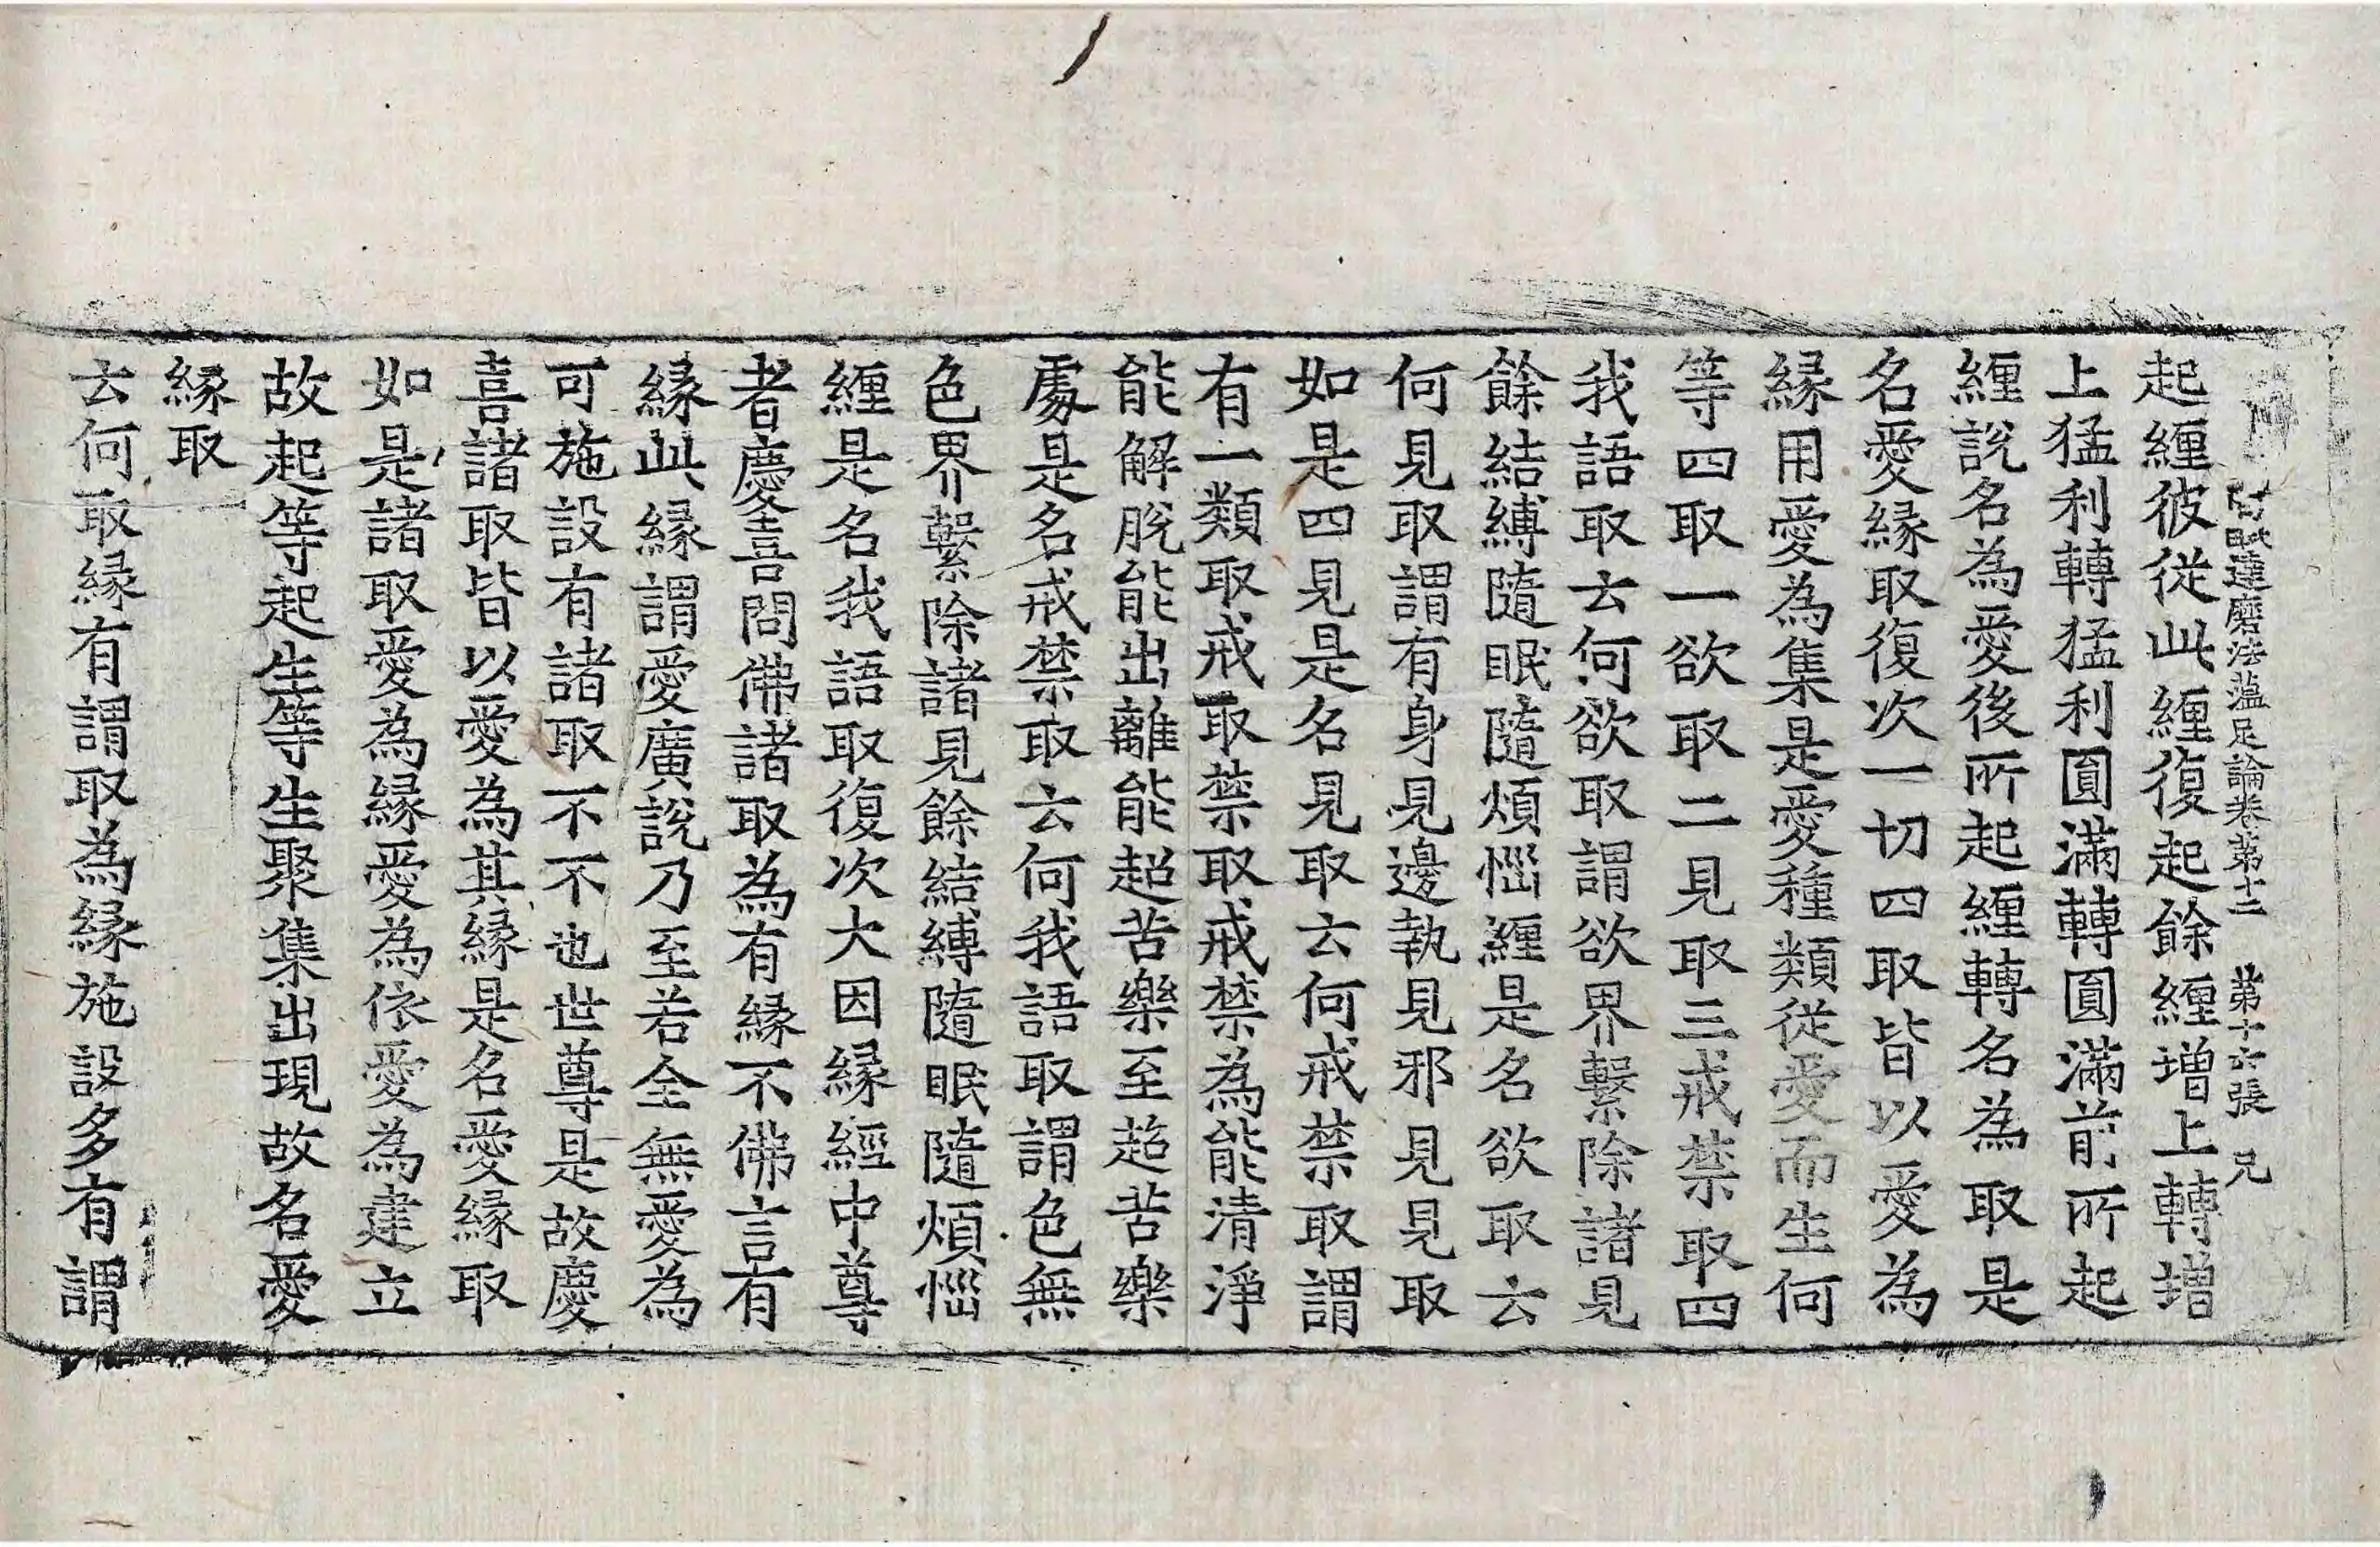 阿毗達磨法蕰足論卷第十二　第十六張　兄
起纒彼從此纒復起餘纒增上轉增
上猛利轉猛利圎滿轉圎滿前所起
纒說名為愛後所起纒轉名為取是
名愛縁取復次一切四取皆以愛為
縁用愛為集是愛種類從愛而生何
等四取一欲取二見取三戒禁取四
我語取云何欲取謂欲界繫除諸見
餘結縛隨眠隨煩惱纒是名欲取云
何見取謂有身見邊執見邪見見取
如是四見是名見取云何戒禁取謂
有一類取戒取禁取戒禁為能清淨
能解脫能出離能超苦樂至超苦樂
處是名戒禁取云何我語取謂色無
色界繫除諸見餘結縛隨眠隨煩惱
纒是名我語取復次大因縁經中尊
者慶喜問佛諸取為有縁不佛言有
縁此縁謂愛廣說乃至若全無愛為
可施設有諸取不不也世尊是故慶
喜諸取皆以愛為其縁是名愛縁取
如是諸取愛為縁愛為依愛為建立
故起等起生等生聚集出現故名愛
縁取
云何取縁有謂取為縁施設多有謂